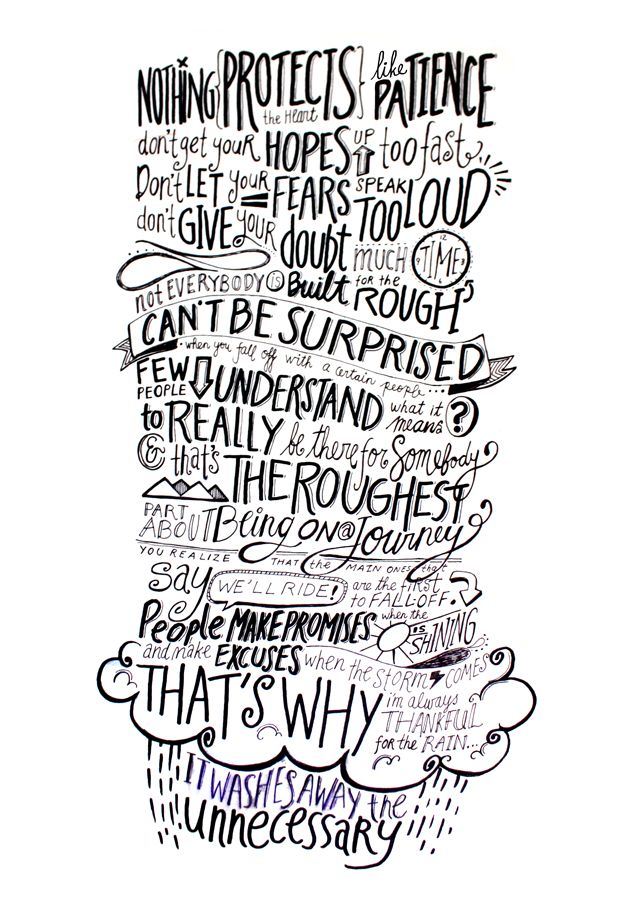 NOTHING {PROTECTS} like PATIENCE
the HEART
don't get youR HOPES UP too fast
Don't LET your FEARS SPEAK TOO LOUD
don't GIVE YOUR doubt much TIME
not EVERYBODY is Built for the ROUGH
CAN'T BE SURPRISED
when you fall off with a certain people...
FEW PEOPLE UNDERSTAND what it means?
to REALLY be there for Somebody
& that's THE ROUGHEST
PART ABOUT Being ON @ Journey
YOU REALIZE THAT the MAIN ONES that
say WE'LL RIDE! are the fIRST to FALL OFF.
People MAKE PROMISES when the IS SHINING
and make EXCUSES when the STORM COMES
THAT'S WHY i'm always THANKFUL for the RAIN...
IT WASHES AWAY the
unnecessary